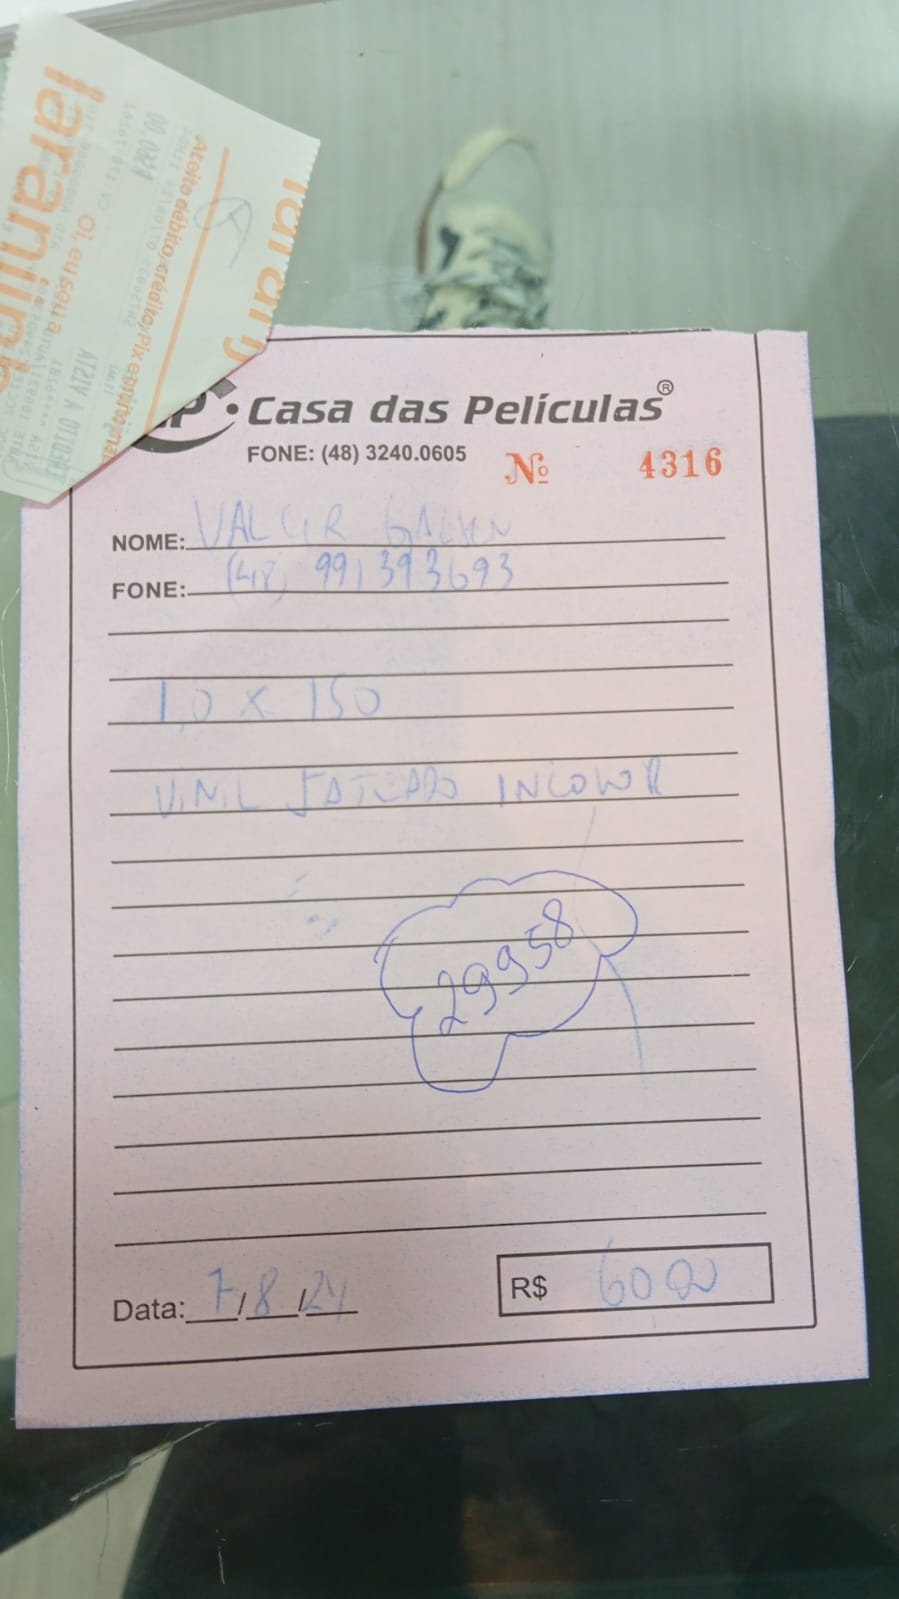 laranj
Aceito débito, crédito, Pix e
Oi, eu sou a
laranj
CREDITO A VISTA
Casa das Películas®
FONE: (48) 3240.0605
Nº 4316
NOME: VALCIR
FONE: (48) 991393693
1,0 X 150
VINIL JATEADO INCOLOR
29958
Data: 7/8/24
R$ 60 00